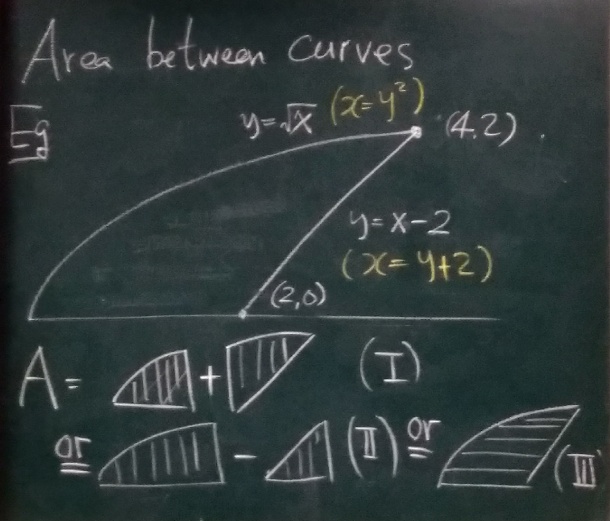 Area between curves
Eg
y=√x (x=y²)
(4,2)
y=x-2
(x=y+2)
(2,0)
A= + (I)
or - (II) or (III)